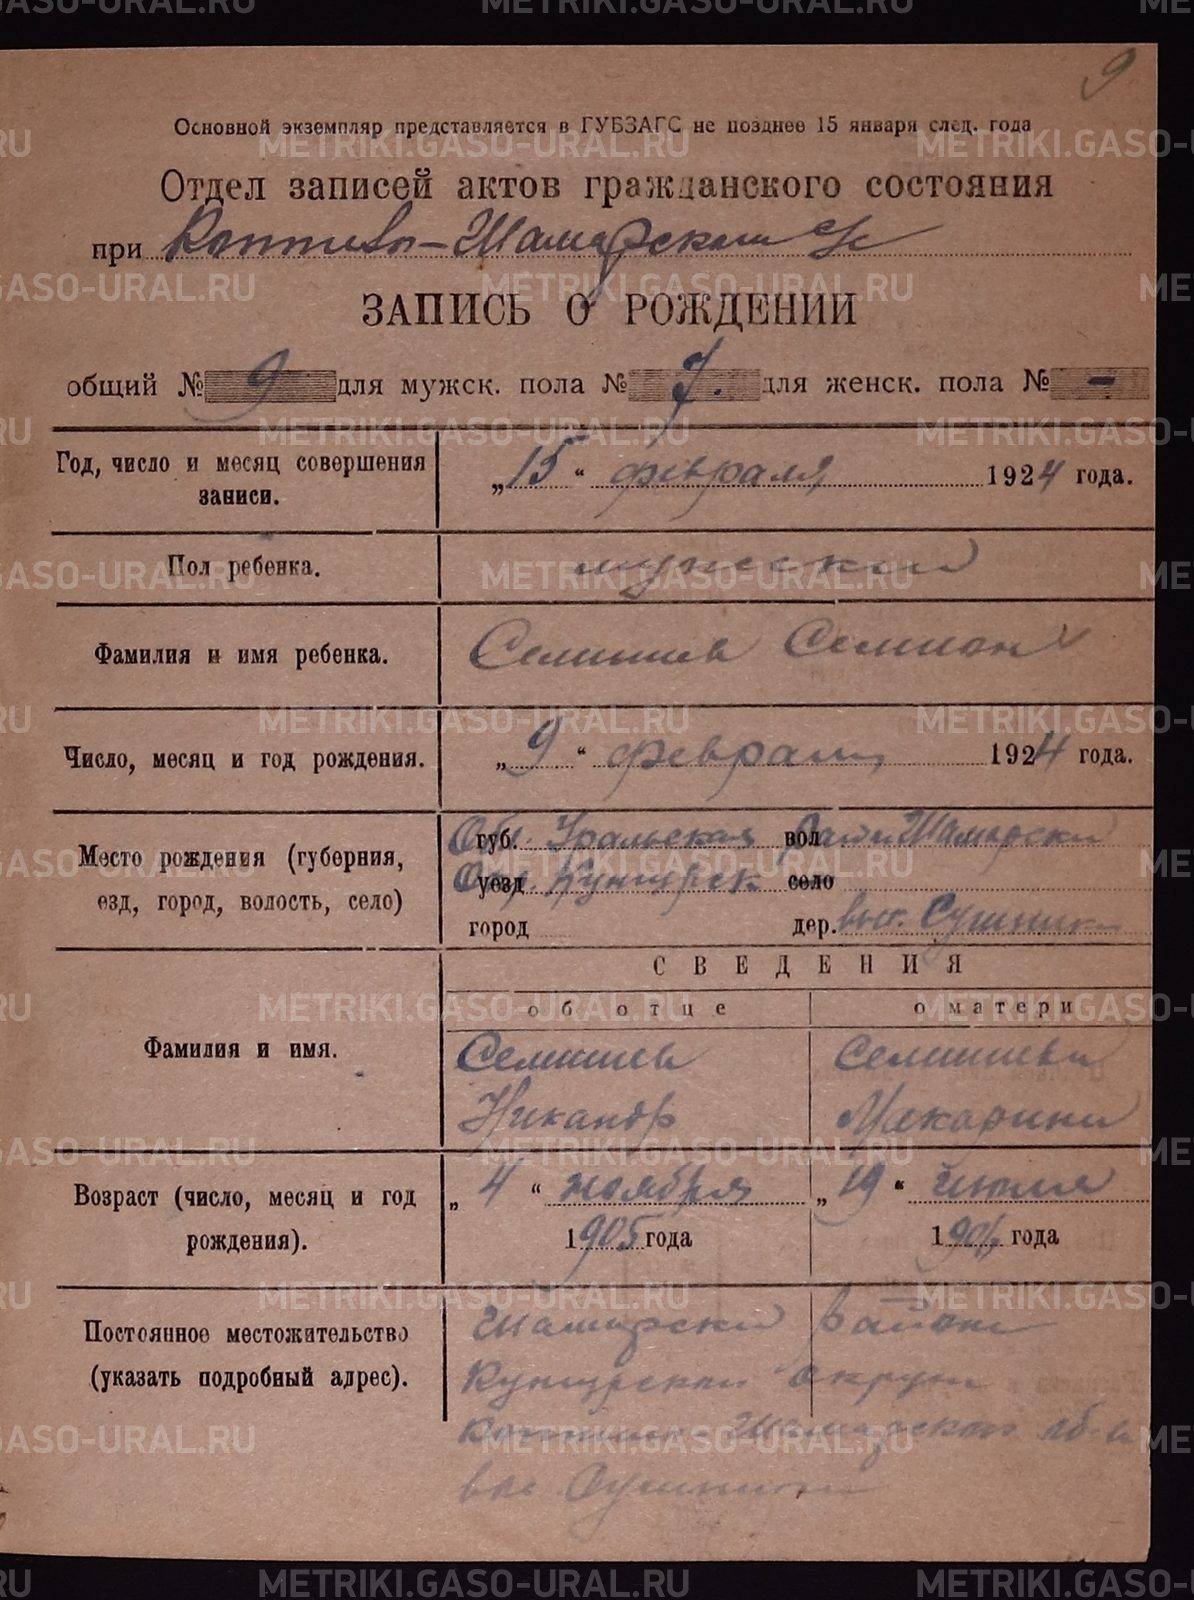 9
Основной экземпляр представляется в ГУБЗАГС не позднее 15 января след. года
Отдел записей актов гражданского состояния
при Коптело-Шамарском с/с
ЗАПИСЬ О РОЖДЕНИИ
общий № 9 для мужск. пола № 7. для женск. пола № -
Год, число и месяц совершения записи. „15“ февраля 1924 года.
Пол ребенка. мужской
Фамилия и имя ребенка. Селишев Семион
Число, месяц и год рождения. „9“ февраля 1924 года.
Место рождения (губерния, Обл. губ. Уральская вол. район Шамарски
езд, город, волость, село) Окр. уезд Кунгурск село
город дер. вык. Сушинки
СВЕДЕНИЯ
об отце о матери
Фамилия и имя. Селишев Селишева
Никандр Макарина
Возраст (число, месяц и год „4“ ноября „19“ июля
рождения). 1905 года 1904 года
Постоянное местожительство Шамарски район
(указать подробный адрес). Кунгурской округ
Шамарской
METRIKI.GASO-URAL.RU